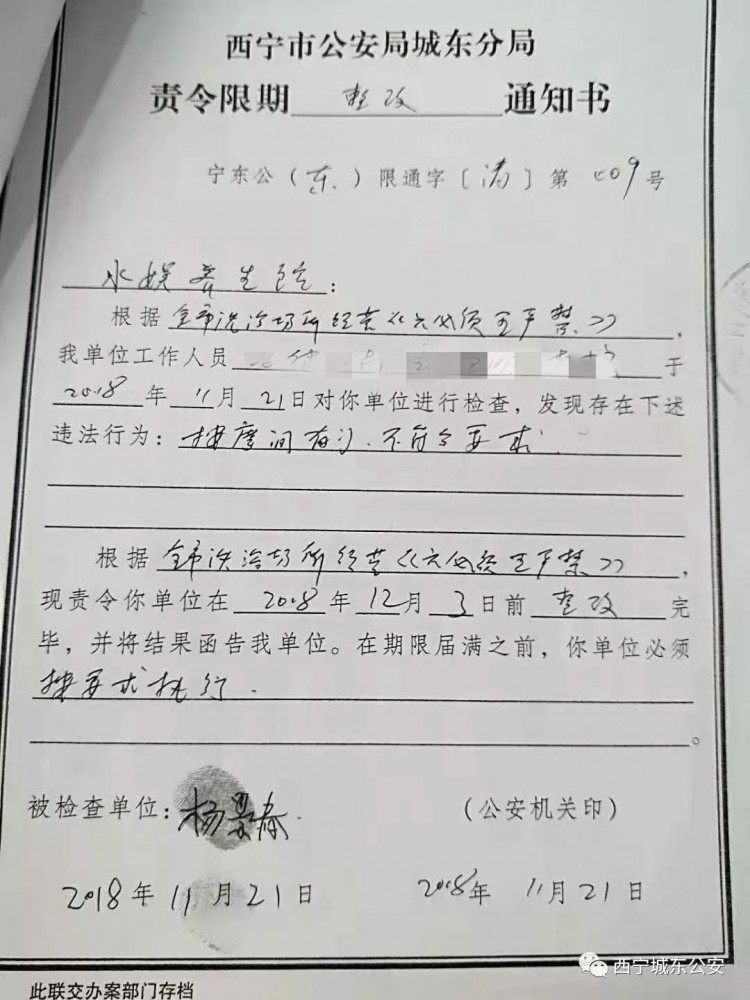 西宁市公安局城东分局
责令限期 整改 通知书
宁东公(东)限通字〔清〕第 009号
水娱养生馆:
根据全市洗浴场所经营《六必须五严禁》,
我单位工作人员 于
2018年11月21日对你单位进行检查,发现存在下述
违法行为:按摩间有门、不符合要求
根据全市洗浴场所经营《六必须五严禁》,
现责令你单位在2018年12月3日前整改完
毕,并将结果函告我单位。在期限届满之前,你单位必须
按要求执行.
。
被检查单位:杨景春. (公安机关印)
2018年11月21日 2018年 11月21日
此联交办案部门存档
西宁城东公安